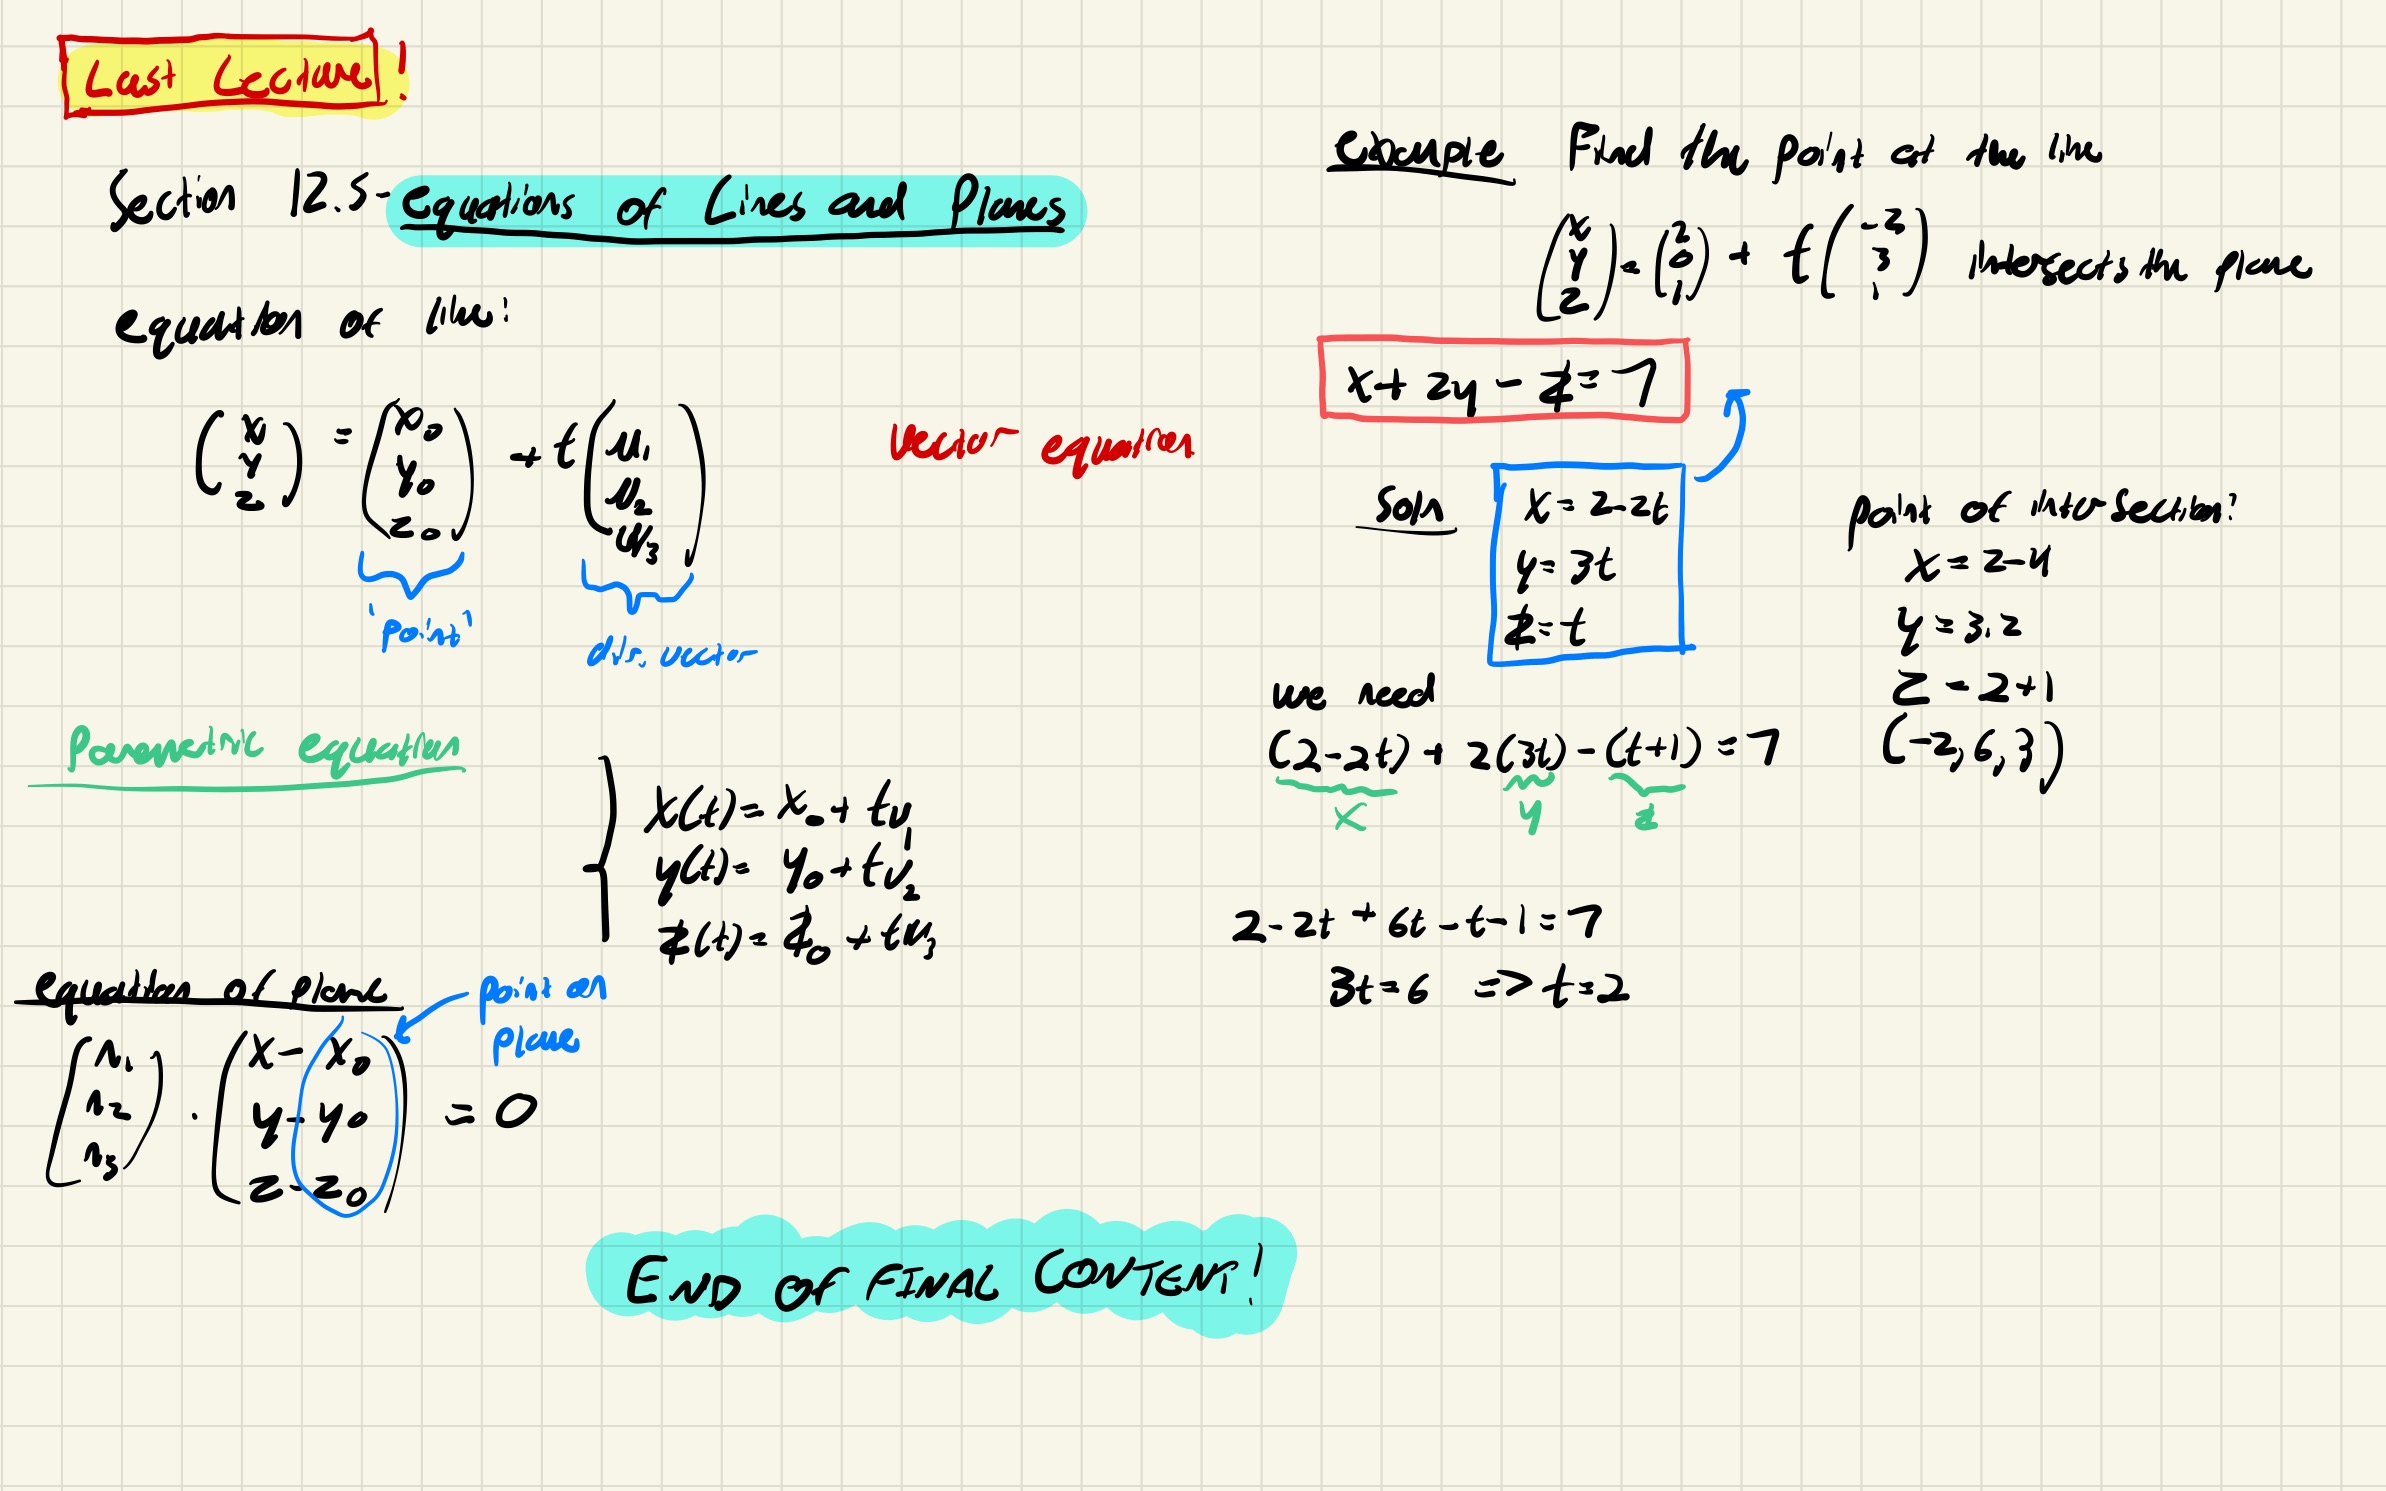 Last Lecture!
Section 12.5 - equations of Lines and Planes
equation of line:
(x y z) = (x₀ y₀ z₀) + t (v₁ v₂ v₃)
vector equation
"point"
dir. vector
Parametric equation
x(t) = x₀ + tv₁
y(t) = y₀ + tv₂
z(t) = z₀ + tv₃
equation of plane
point on
plane
(n₁ n₂ n₃) · (x - x₀ y - y₀ z - z₀) = 0
example Find the point at the line
(x y z) = (2 0 1) + t (-2 3 1) intersects the plane
x + 2y - z = 7
Soln
x = 2 - 2t
y = 3t
z = t
we need
(2 - 2t) + 2(3t) - (t + 1) = 7
x y z
2 - 2t + 6t - t - 1 = 7
3t = 6 => t = 2
point of intersection:
x = 2 - 4
y = 3.2
z = 2 + 1
(-2, 6, 3)
END OF FINAL CONTENT!